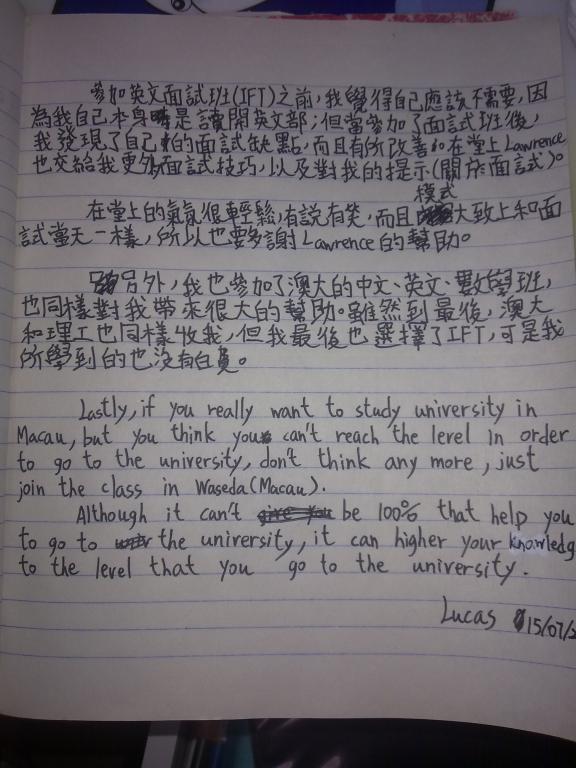 參加英文面試班(IFT)之前,我覺得自己應該不需要,因
為我自己本身是讀開英文部;但當參加了面試班後,
我發現了自己的面試缺點,而且有所改善。在堂上Lawrence
也交給我更多面試技巧,以及對我的提示(關於面試)。
在堂上的氣氛很輕鬆,有說有笑,而且模式大致上和面
試當天一樣,所以也要多謝Lawrence的幫助。
另外,我也參加了澳大的中文、英文、數學班,
也同樣對我帶來很大的幫助。雖然到最後,澳大
和理工也同樣收我,但我最後也選擇了IFT,可是我
所學到的也沒有白負。
Lastly, if you really want to study university in
Macau, but you think you can't reach the level in order
to go to the university, don't think any more, just
join the class in Waseda (Macau).
Although it can't be 100% that help you
to go to the university, it can higher your knowledg
to the level that you go to the university.
Lucas 15/07/2